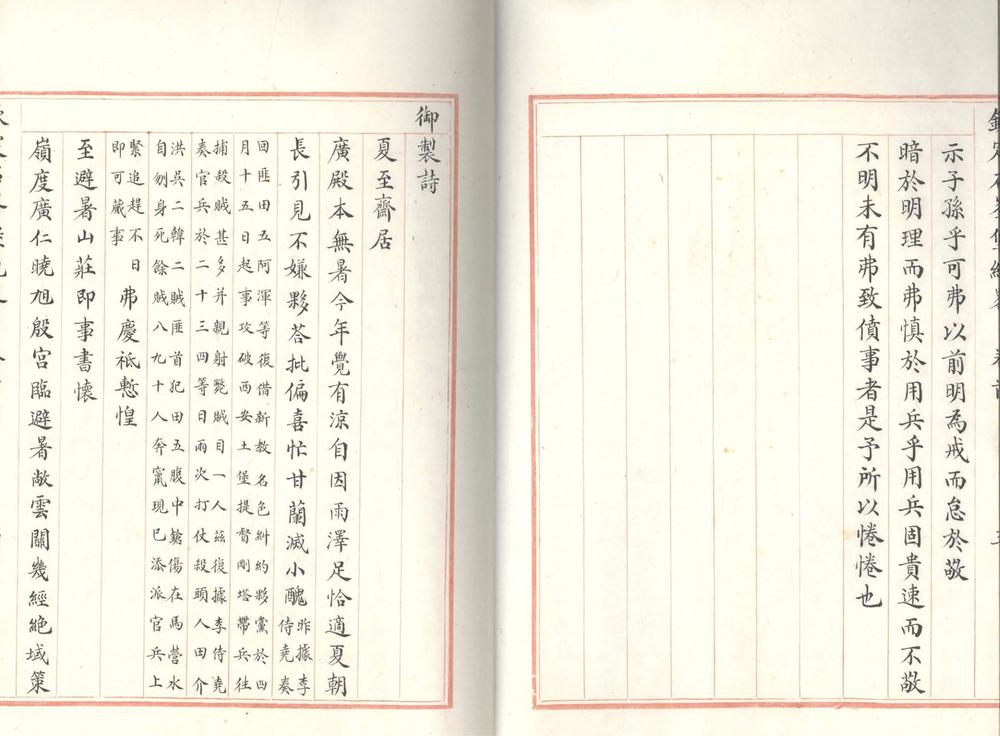 示子孫乎可弗以前明為戒而怠於敬
暗於明理而弗慎於用兵乎用兵固貴速而不敬
不明未有弗致僨事者是予所以惓惓也
御製詩
夏至齋居
廣殿本無暑今年覺有涼自因雨澤足恰適夏朝
長引見不嫌夥荅批偏喜忙甘蘭滅小醜
昨據李
侍堯奏
回匪田五阿渾等復借新教名色糾約夥黨於四
月十五日起事攻破西安土堡提督剛塔帶兵往
捕殺賊甚多并親射斃賊目一人茲復據李侍堯
奏官兵於二十三四等日兩次打仗殺頭人田介
洪吳二韓二賊匪首犯田五腹中鎗傷在馬營水
自刎身死餘賊八九十人奔竄現已添派官兵上
緊追趕不日
即可蕆事
弗慶祗慙惶
至避暑山莊即事書懷
嶺度廣仁曉旭殷宮臨避暑敞雲關幾經絶域策